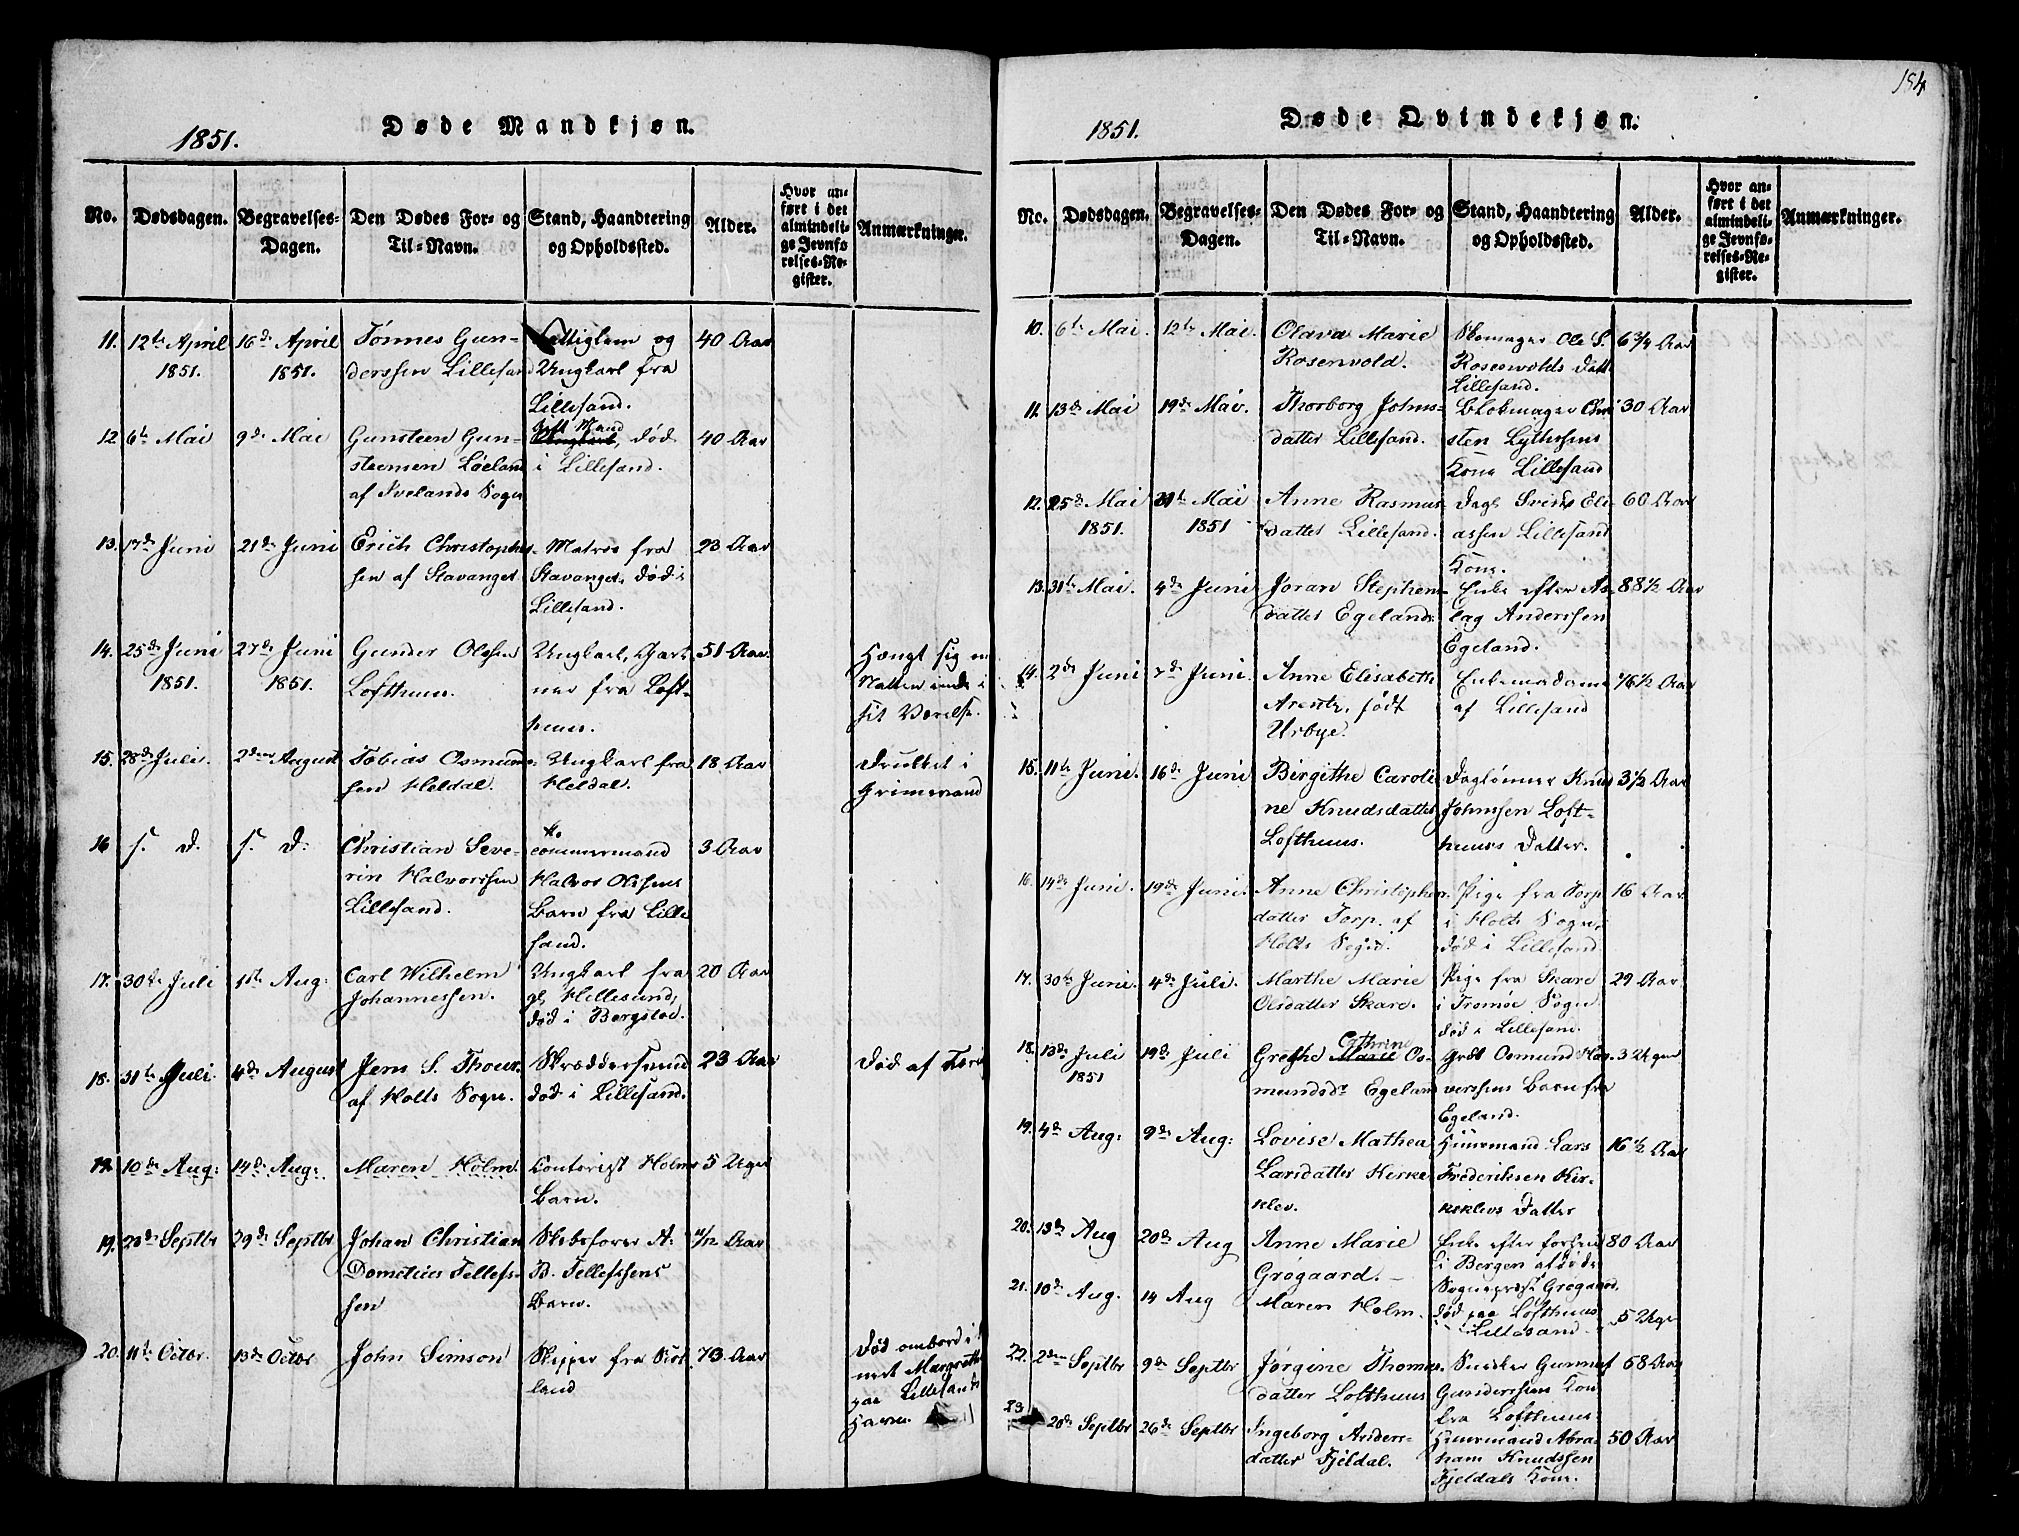 184
1851.
Døde Mandkjøn.
No. Dødsdagen. Begravelses-Dagen. Den Dødes For- og Til-Navn. Stand, Haandtering og Opholdssted. Alder. Hvor anført i det almindelige Jevnførelses-Register. Anmærkninger.
11. 12te April 16de April Tønnes Gun- Fattiglem og 40 Aar
1851. 1851. derssen Lillesand Ungkarl fra
Lillesand.
12 6te Mai 9de Mai Gunsteen Gun- Gift Mand 40 Aar
Ungkarl, død
stensen Løeland i Lillesand.
af Ivelands Sogn
13. 17de Juni 21de Juni Erich Christopher- Matros fra 23 Aar
sen af Stavanger Stavanger, død i
Lillesand.
14. 25de Juni 27de Juni Gunder Olsen Ungkarl, Gart- 51 Aar. Hængt sig om
1851. 1851. Lofthuus. ner fra Loft- Natten inde i
huus. sit Værelse.
15. 28de Juli. 2den August Tobias Osmund- Ungkarl fra 18 Aar Druknet i
sen Heldal. Heldal. Grimevand
16 s. D. s. D. Christian Seve- commermand 3 Aar
rin Halvorssen Halvor Olssens
Lillesand. Barn fra Lille
sand.
17. 30te Juli 1ste Aug: Carl Wilhelm Ungkarl fra 20 Aar
Johannessen. gl. Hellesund,
død i Bergsløe.
18. 31te Juli. 4de August Jens S. Thour. Skræddersvend 23 Aar Død af Tæring
af Holts Sogn. død i Lillesand.
19. 10de Aug: 14de Aug: Maren Holm Contorist Holms 5 Uger
Barn.
19. 20de Septbr 29de Septbr Johan Christian Skibsfører A. 11/12 Aar
Dometius Tellefs- B. Tellefssens
sen Barn.
20. 11te Octbr. 13de Octbr John Simson Skipper fra Skot 73 Aar Død ombord i
land Margrethe
paa Lillesands
Havn.
1851.
Døde Qvindekjøn.
No. Dødsdagen. Begravelses-Dagen. Den Dødes For- og Til-Navn. Stand, Haandtering og Opholdssted. Alder. Hvor anført i det almindelige Jevnførelses-Register. Anmærkninger.
10. 6te Mai. 12te Mai. Olava Marie Skomager Ole S. 6 3/4 Aar
Rosenvold. Rosenvolds Datt
Lillesand.
11. 13de Mai 19de Mai. Thorborg Johns- Blokmager Chri 30 Aar
datter Lillesand. sten Lythssens
Kone Lillesand
12. 25de Mai 31te Mai Anne Rasmus- Dagl Svend Eli- 60 Aar
1851. 1851 datter Lillesand. assen Lillesand
Kone.
13. 31te Mai. 4de Juni Joran Stephens- Enke efter As- 88 1/2 Aar
datter Egeland. lag Anderssen
Egeland.
14. 2den Juni 7de Juni. Anne Elisabeth Enkemadame 76 1/2 Aar
Arentz, født af Lillesand
Urbye.
15. 11te Juni. 16de Juni Birgithe Caroli- Daglønner Knud 3 1/2 Aar
ne Knudsdatter Johnssen Loft-
Lofthuus. huus Datter.
16. 14de Juni. 19de Juni. Anne Christophers- Pige fra Torp 16 Aar
datter Torp. af i Holts Sogn,
Holts Sogn. død i Lillesand
17. 30te Juni. 4de Juli. Marthe Marie Pige fra Skare 29 Aar
Olsdatter Skare. i Tromøe Sogn
død i Lillesand.
18. 13de Juli 19de Juli Grethe Marie Cathrine Os- Grdb Osmund Hal- 3 Uger
1851 mundsdr Egeland verssens Barn fra
Egeland.
19. 4de Aug: 9de Aug: Lovise Mathea Huusmand Lars 16 1/2 Aar
Larsdatter Kirke Frederiksen Kir-
klev. keklevs Datter
20. 13de Aug 20de Aug Anne Marie Enke efter forhen 80 Aar
Grøgaard. i Bergen afdøde
Sognepræst Grøgaard,
død paa Lofthuus
21. 10de Aug. 14 Aug Maren Holm. Lillesand. 5 Uger
22. 2den Septbr 9de Septbr Jørgine Thomas- Snedker Gunnuf 68 Aar
datter Lofthuus Gunderssen Kone
fra Lofthuus.
23 20de Septbr 26de Septbr Ingeborg Anders- Huusmand Abra 50 Aar
datter Fjeldal. ham Knudssen
Fjeldals Kone.